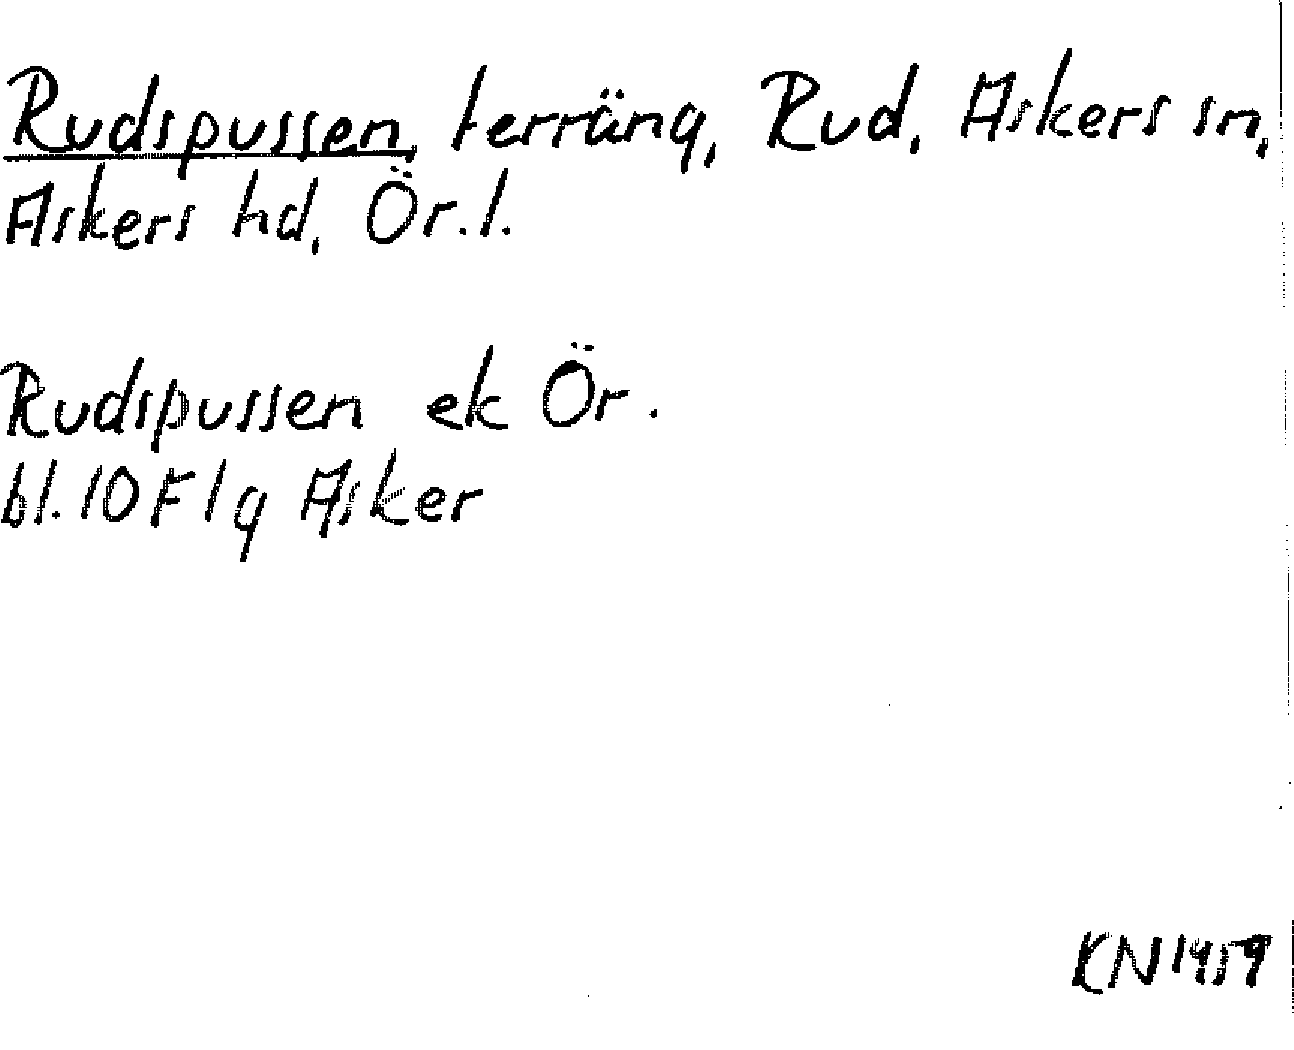 Rudspussen, terräng, Rud, Askers sn,
Askers hd, Ör. l.
Rudspussen ek Ör.
bl. 10F1g Asker
KN 1959